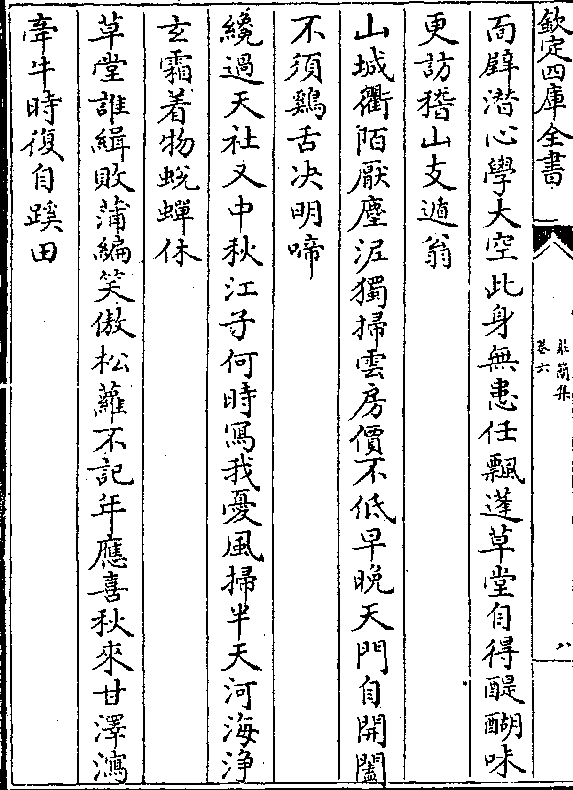 欽定四庫全書
莊簡集
卷六
八
面壁潛心學大空此身無患任飄蓬草堂自得醍醐味
更訪稽山支遁翁
山城衢陌厭塵泥獨掃雲房價不低早晚天門自開闔
不須鷄舌决明啼
纔過天社又中秋江子何時寫我憂風掃半天河海浄
玄霜着物蛻蟬休
草堂誰緝敗蒲編笑傲松蘿不記年應喜秋來甘澤瀉
牽牛時復自蹊田